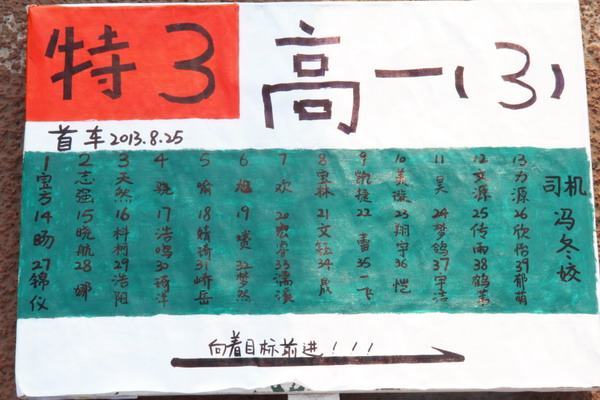 特3 高一(3)
首车2013.8.25
1 2 3 4 5 6 7 8 9 10 11 12 13
宝方 志强 天然 骁 喻 旭 欢 宝林 凯捷 美璇 昊 文源 力源
司机
冯冬姣
14 15 16 17 18 19 20 21 22 23 24 25 26
旸 晓航 科柯 浩鸣 婧琦 赟 文钰 蕾 翔宇 梦鸽 传雨 欣怡
27 28 29 30 31 32 33 34 35 36 37 38 39
锦仪 娜 浩阳 琦洋 峤岳 梦然 濡溪 晟 一飞 恺 宇洁 鹤 郁萌
向着目标前进!!!